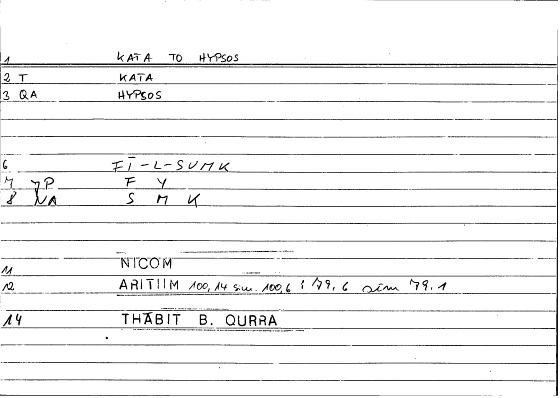 1 KATA TO HYPSOS
2 T KATA
3 QA HYPSOS
6 FĪ-L-SUMK
7 JP F Y
8 NA S M K
11 NICOM
12 ARITIIM 100,14 sim. 100,6 : 79,6 sim 79,1
14 THĀBIT B. QURRA